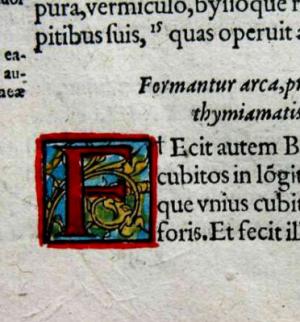 pura, vermiculo, bysso que r
pitibus suis, ¹⁵ quas operuit a
ea-
au-
neæ
Formantur arca, pr
thymiamatis
F † Ecit autem B
cubitos in lōgit
que vnius cubit
foris. Et fecit ill